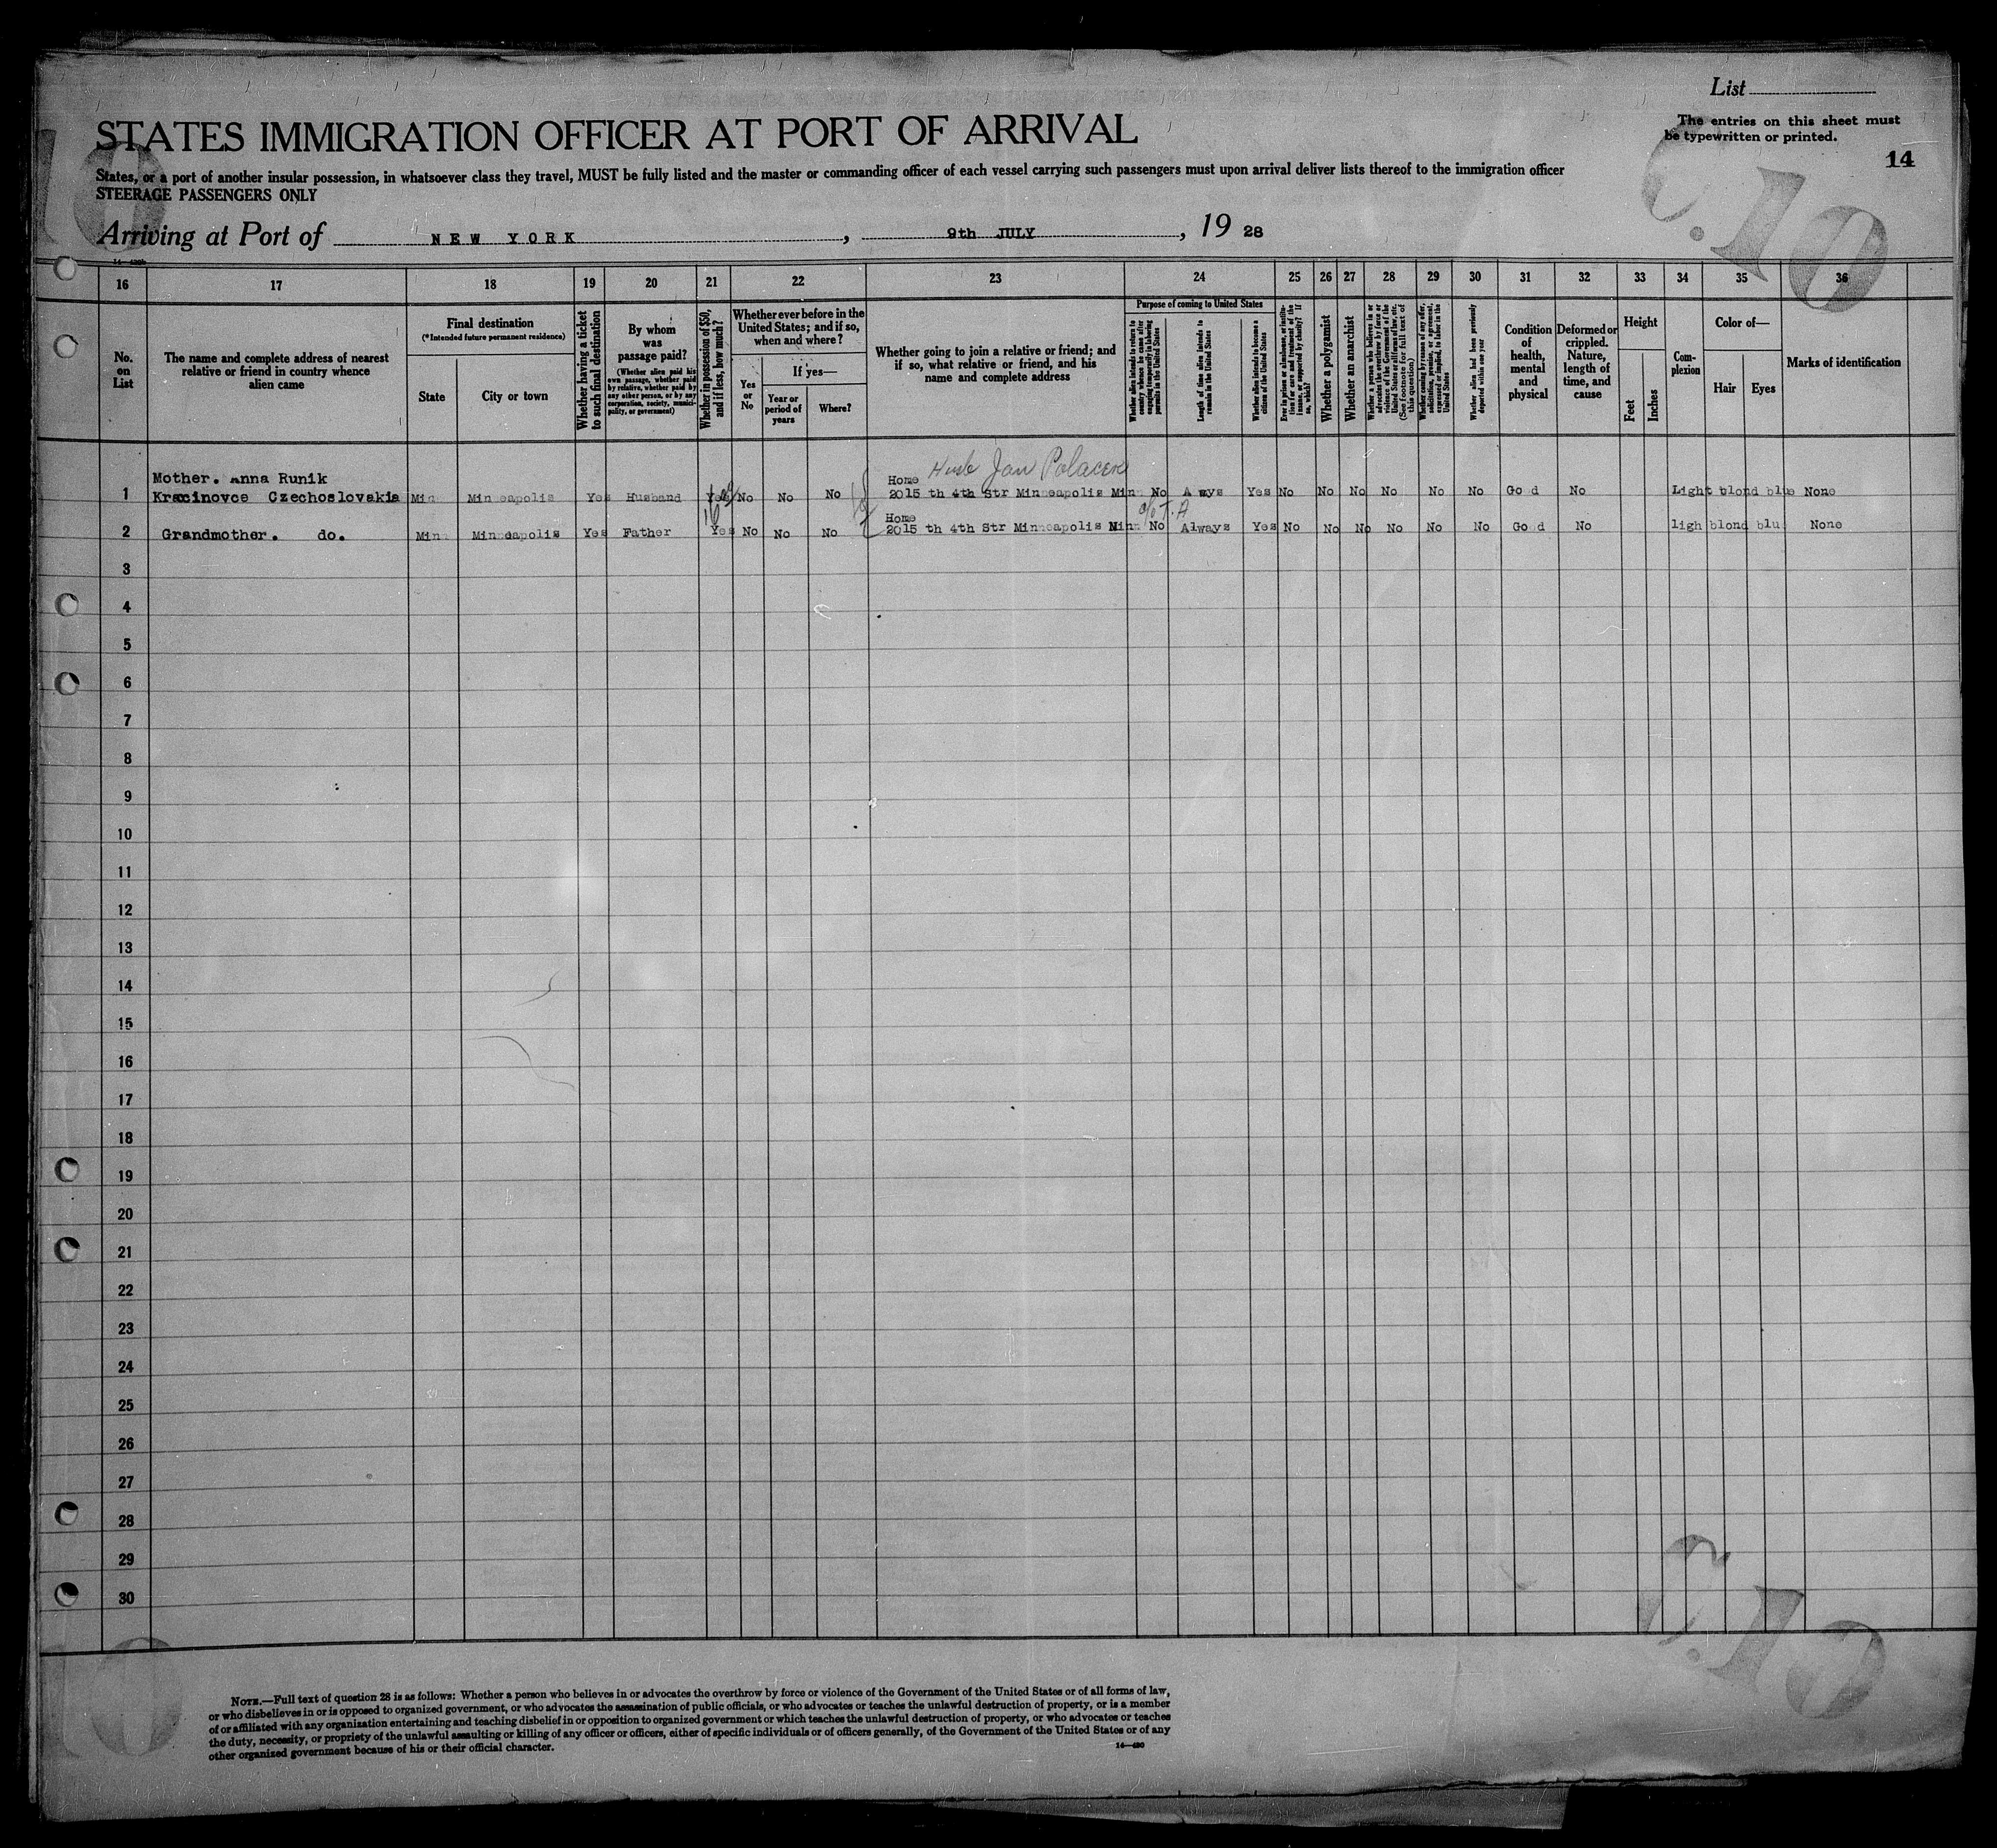 List
The entries on this sheet must
be typewritten or printed.
14
STATES IMMIGRATION OFFICER AT PORT OF ARRIVAL
States, or a port of another insular possession, in whatsoever class they travel, MUST be fully listed and the master or commanding officer of each vessel carrying such passengers must upon arrival deliver lists thereof to the immigration officer
STEERAGE PASSENGERS ONLY
Arriving at Port of NEW YORK, 9th JULY, 19 28
16 17 18 19 20 21 22 23 24 25 26 27 28 29 30 31 32 33 34 35 36
No. on List
The name and complete address of nearest
relative or friend in country whence
alien came
Final destination
(*Intended future permanent residence)
State
City or town
Whether having a ticket
to such final destination
By whom
was
passage paid?
(Whether alien paid his
own passage, whether paid
by relative, whether paid by
any other person, or by any
corporation, society, munici-
pality, or government)
Whether in possession of $50,
and if less, how much?
Whether ever before in the
United States; and if so,
when and where?
Yes
or
No
If yes—
Year or
period of
years
Where?
Whether going to join a relative or friend; and
if so, what relative or friend, and his
name and complete address
Purpose of coming to United States
Whether alien intends to return to
country whence he came after
engaging temporarily in laboring
pursuits in the United States
Length of time alien intends to
remain in the United States
Whether alien intends to become a
citizen of the United States
Ever in prison or almshouse, or institu-
tion for care and treatment of the
insane, or supported by charity? If
so, which?
Whether a polygamist
Whether an anarchist
Whether a person who believes in or
advocates the overthrow by force or
violence of the Government of the
United States or all forms of law, etc.
(See footnote for full text of
this question)
Whether coming by reason of any offer,
solicitation, promise, or agreement,
expressed or implied, to labor in the
United States
Whether alien had been previously
deported within one year
Condition
of
health,
mental
and
physical
Deformed or
crippled.
Nature,
length of
time, and
cause
Height
Feet
Inches
Com-
plexion
Color of—
Hair
Eyes
Marks of identification
Husb Jan Polacek
Mother. Anna Runik
Home
1 Kracinovce Czechoslovakia Minn Minneapolis Yes Husband Yes No No No 2015 th 4th Str Minneapolis Minn No Always Yes No No No No No No Good No Light blond blue None
Home
2 Grandmother. do. Minn Minneapolis Yes Father Yes No No No 2015 th 4th Str Minneapolis Minn No Always Yes No No No No No No Good No ligh blond blu None
3
4
5
6
7
8
9
10
11
12
13
14
15
16
17
18
19
20
21
22
23
24
25
26
27
28
29
30
NOTE.—Full text of question 28 is as follows: Whether a person who believes in or advocates the overthrow by force or violence of the Government of the United States or of all forms of law,
or who disbelieves in or is opposed to organized government, or who advocates the assassination of public officials, or who advocates or teaches the unlawful destruction of property, or is a member
of or affiliated with any organization entertaining and teaching disbelief in or opposition to organized government or which teaches the unlawful destruction of property, or who advocates or teaches
the duty, necessity, or propriety of the unlawful assaulting or killing of any officer or officers, either of specific individuals or of officers generally, of the Government of the United States or of any
other organized government because of his or their official character.
14—430